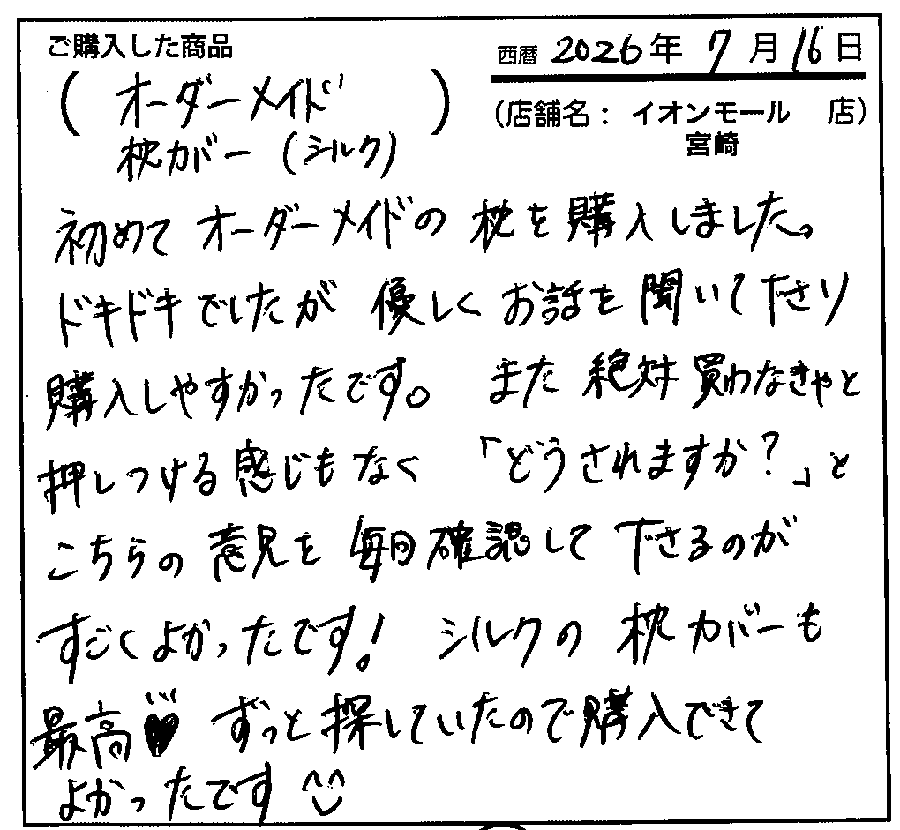 ご購入した商品
西暦 2026年 7月16日
( オーダーメイド )
枕カバー (シルク)
(店舗名: イオンモール 店)
宮崎
初めて オーダーメイドの 枕を購入しました。
ドキドキでしたが 優しく お話を 聞いて下さり
購入しやすかったです。 また 絶対 買わなきゃと
押しつける感じもなく 「どうされますか?」と
こちらの 意見を 毎回確認して 下さるのが
すごくよかったです! シルクの 枕カバーも
最高♥ ずっと探していたので購入できて
よかったです ^^